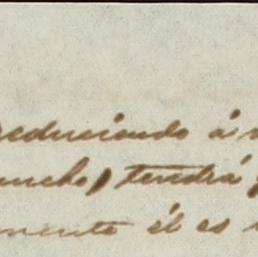 reduciendo á
mucho, tendrá
mente él es